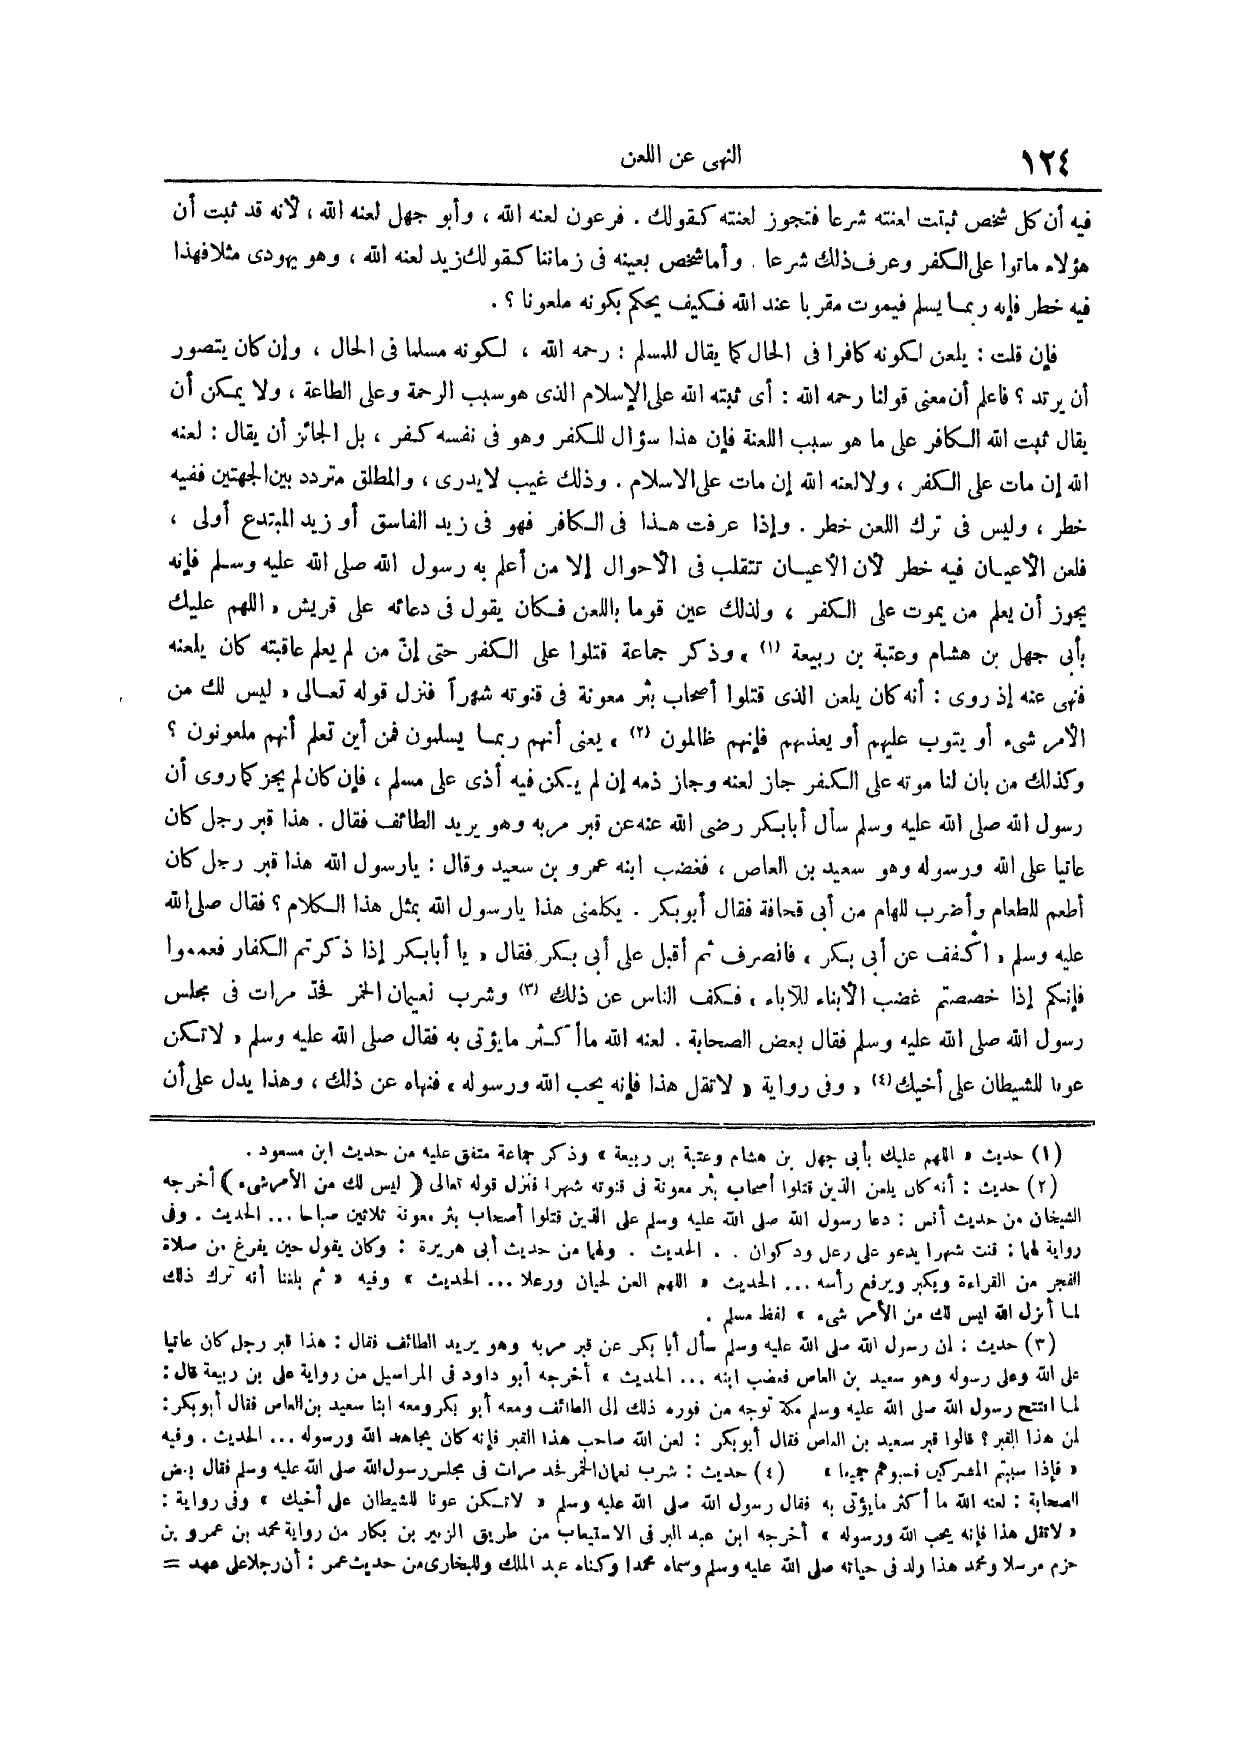 ١٢٤
النهى عن اللعن
فيه أن كل شخص ثبتت لعنته شرعا فتجوز لعنته كقولك . فرعون لعنه الله ، وأبو جهل لعنه الله ، لأنه قد ثبت أن
هؤلاء ماتوا على الكفر وعرف ذلك شرعا . وأما شخص بعينه فى زماننا كقولك زيد لعنه الله ، وهو يهودى مثلا فهذا
فيه خطر فإنه ربما يسلم فيموت مقربا عند الله فكيف يحكم بكونه ملعونا ؟ .
فإن قلت : يلعن لكونه كافرا فى الحال كما يقال للمسلم : رحمه الله ، لكونه مسلما فى الحال ، وإن كان يتصور
أن يرتد ؟ فاعلم أن معنى قولنا رحمه الله : أى ثبته الله على الإسلام الذى هو سبب الرحمة وعلى الطاعة ، ولا يمكن أن
يقال ثبت الله الكافر على ما هو سبب اللعنة فإن هذا سؤال للكفر وهو فى نفسه كفر ، بل الجائز أن يقال : لعنه
الله إن مات على الكفر ، ولا لعنه الله إن مات على الاسلام . وذلك غيب لا يدرى ، والمطلق متردد بين الجهتين ففيه
خطر ، وليس فى ترك اللعن خطر . وإذا عرفت هذا فى الكافر فهو فى زيد الفاسق أو زيد المبتدع أولى ،
فلعن الأعيان فيه خطر لأن الأعيان تتقلب فى الأحوال إلا من أعلم به رسول الله صلى الله عليه وسلم فإنه
يجوز أن يعلم من يموت على الكفر ، ولذلك عين قوما باللعن فكان يقول فى دعائه على قريش « اللهم عليك
بأبى جهل بن هشام وعتبة بن ربيعة (١) » وذكر جماعة قتلوا على الكفر حتى إنّ من لم يعلم عاقبته كان يلعنه
فنهى عنه إذ روى : أنه كان يلعن الذى قتلوا أصحاب بئر معونة فى قنوته شهراً فنزل قوله تعالى « ليس لك من
الأمر شىء أو يتوب عليهم أو يعذبهم فإنهم ظالمون (٢) » يعنى أنهم ربما يسلمون فمن أين تعلم أنهم ملعونون ؟
وكذلك من بان لنا موته على الكفر جاز لعنه وجاز ذمه إن لم يكن فيه أذى على مسلم ، فإن كان لم يجز كما روى أن
رسول الله صلى الله عليه وسلم سأل أبا بكر رضى الله عنه عن قبر مر به وهو يريد الطائف فقال . هذا قبر رجل كان
عاتيا على الله ورسوله وهو سعيد بن العاص ، فغضب ابنه عمرو بن سعيد وقال : يا رسول الله هذا قبر رجل كان
أطعم للطعام وأضرب للهام من أبى قحافة فقال أبو بكر . يكلمنى هذا يا رسول الله بمثل هذا الكلام ؟ فقال صلى الله
عليه وسلم « اكفف عن أبى بكر » فانصرف ثم أقبل على أبى بكر فقال « يا أبا بكر إذا ذكرتم الكفار فعمموا
فإنكم إذا خصصتم غضب الأبناء للآباء » فكف الناس عن ذلك (٣) وشرب نعيمان الخمر فحدّ مرات فى مجلس
رسول الله صلى الله عليه وسلم فقال بعض الصحابة . لعنه الله ما أكثر ما يؤتى به فقال صلى الله عليه وسلم « لا تكن
عونا للشيطان على أخيك (٤) » وفى رواية « لا تقل هذا فإنه يحب الله ورسوله » فنهاه عن ذلك ، وهذا يدل على أن
(١) حديث « اللهم عليك بأبى جهل بن هشام وعتبة بن ربيعة » وذكر جماعة متفق عليه من حديث ابن مسعود .
(٢) حديث : أنه كان يلعن الذين قتلوا أصحاب بئر معونة فى قنوته شهرا فنزل قوله تعالى ( ليس لك من الأمر شىء ) أخرجه
الشيخان من حديث أنس : دعا رسول الله صلى الله عليه وسلم على الذين قتلوا أصحاب بئر معونة ثلاثين صباحا ... الحديث . وفى
رواية لهما : قنت شهرا يدعو على رعل وذكوان . . الحديث . ولهما من حديث أبى هريرة : وكان يقول حين يفرغ من صلاة
الفجر من القراءة ويكبر ويرفع رأسه ... الحديث « اللهم العن لحيان ورعلا ... الحديث » وفيه « ثم بلغنا أنه ترك ذلك
لما أنزل الله ليس لك من الأمر شىء » لفظ مسلم .
(٣) حديث : ان رسول الله صلى الله عليه وسلم سأل أبا بكر عن قبر مر به وهو يريد الطائف فقال : هذا قبر رجل كان عاتيا
على الله وعلى رسوله وهو سعيد بن العاص فغضب ابنه ... الحديث » أخرجه أبو داود فى المراسيل من رواية على بن ربيعة قال :
لما افتتح رسول الله صلى الله عليه وسلم مكة توجه من فوره ذلك إلى الطائف ومعه أبو بكر ومعه ابنا سعيد بن العاص فقال أبو بكر :
لمن هذا القبر ؟ قالوا قبر سعيد بن العاص فقال أبو بكر : لعن الله صاحب هذا القبر فإنه كان يجاهد الله ورسوله ... الحديث . وفيه
« فإذا سببتم المشركين فسبوهم جميعا » (٤) حديث : شرب نعمان الخمر فحد مرات فى مجلس رسول الله صلى الله عليه وسلم فقال بعض
الصحابة : لعنه الله ما أكثر ما يؤتى به فقال رسول الله صلى الله عليه وسلم « لا تكن عونا للشيطان على أخيك » وفى رواية :
« لا تقل هذا فإنه يحب الله ورسوله » أخرجه ابن عبد البر فى الاستيعاب من طريق الزبير بن بكار من رواية محمد بن عمرو بن
حزم مرسلا ومحمد هذا ولد فى حياته صلى الله عليه وسلم وسماه محمدا وكناه عبد الملك وللبخارى من حديث عمر : أن رجلا على عهد =